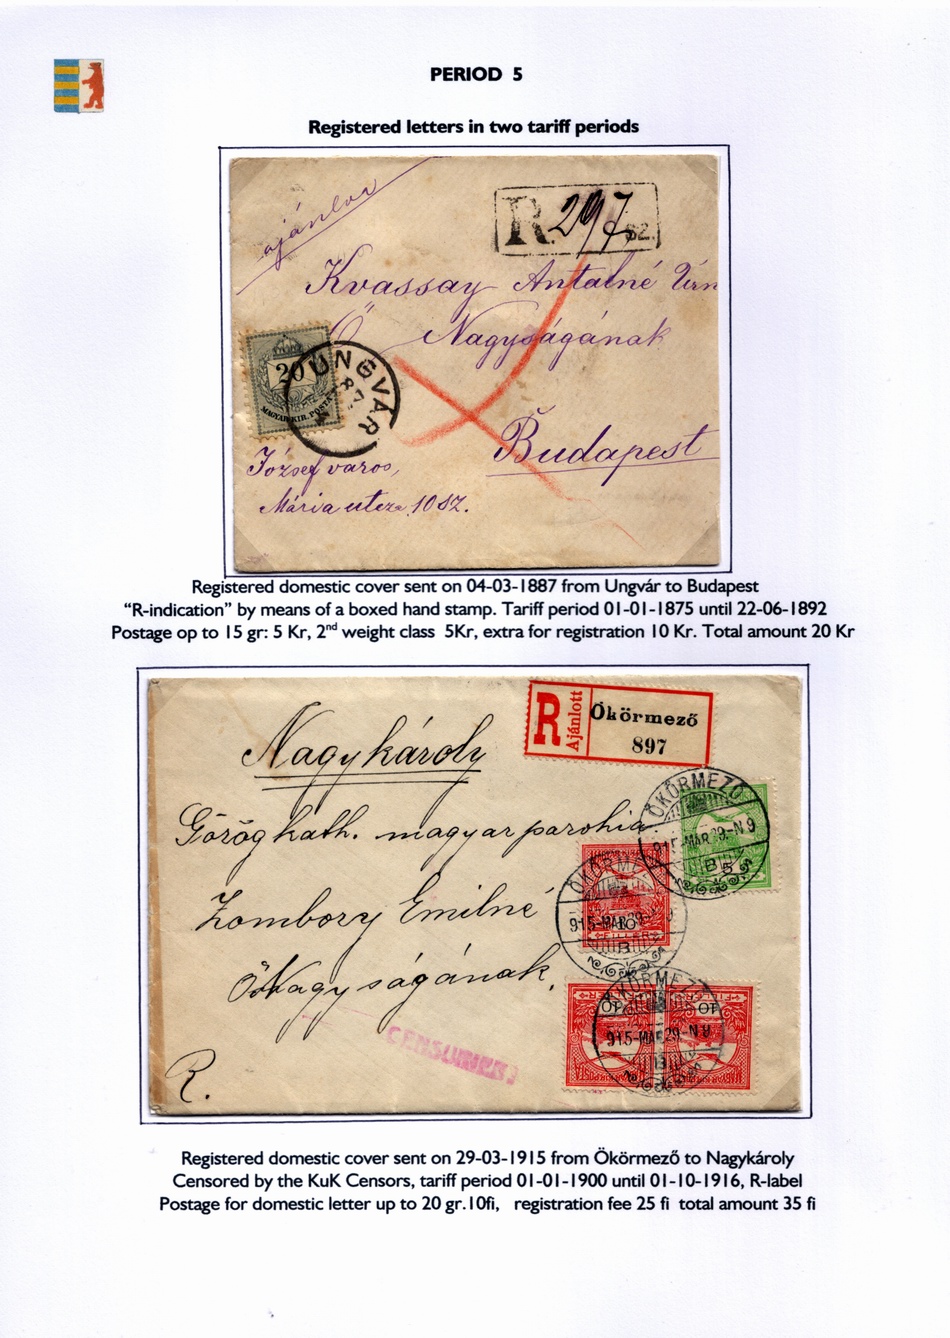 PERIOD 5
Registered letters in two tariff periods
ajánlva
R. 297 sz.
Kvassay Antalné Úrnő
Nagyságának
Budapest
20
MAGYAR KIR. POSTA
UNGVÁR
87
József város,
Mária utcza 10 sz.
Registered domestic cover sent on 04-03-1887 from Ungvár to Budapest
“R-indication” by means of a boxed hand stamp. Tariff period 01-01-1875 until 22-06-1892
Postage op to 15 gr: 5 Kr, 2nd weight class 5Kr, extra for registration 10 Kr. Total amount 20 Kr
R Ajánlott
Ökörmező
897
Nagykároly
ÖKÖRMEZŐ
915-MAR.29.-N 9
B
5
Görög kath. magyar parohia.
ÖKÖRMEZŐ
915-MAR.29
10
B
Zombory Emilné
Ő Nagyságának,
ÖKÖRMEZŐ
10
10
915-MAR.29.-N 9
B
CENSURIERT
R.
Registered domestic cover sent on 29-03-1915 from Ökörmező to Nagykároly
Censored by the KuK Censors, tariff period 01-01-1900 until 01-10-1916, R-label
Postage for domestic letter up to 20 gr.10fi, registration fee 25 fi total amount 35 fi